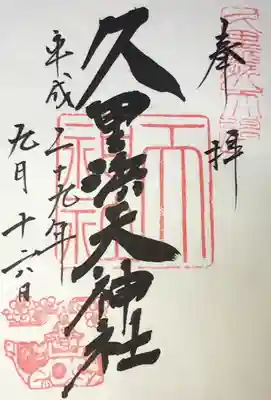 奉拝
久里浜天神社
天神社
平成二十九年
九月十六日